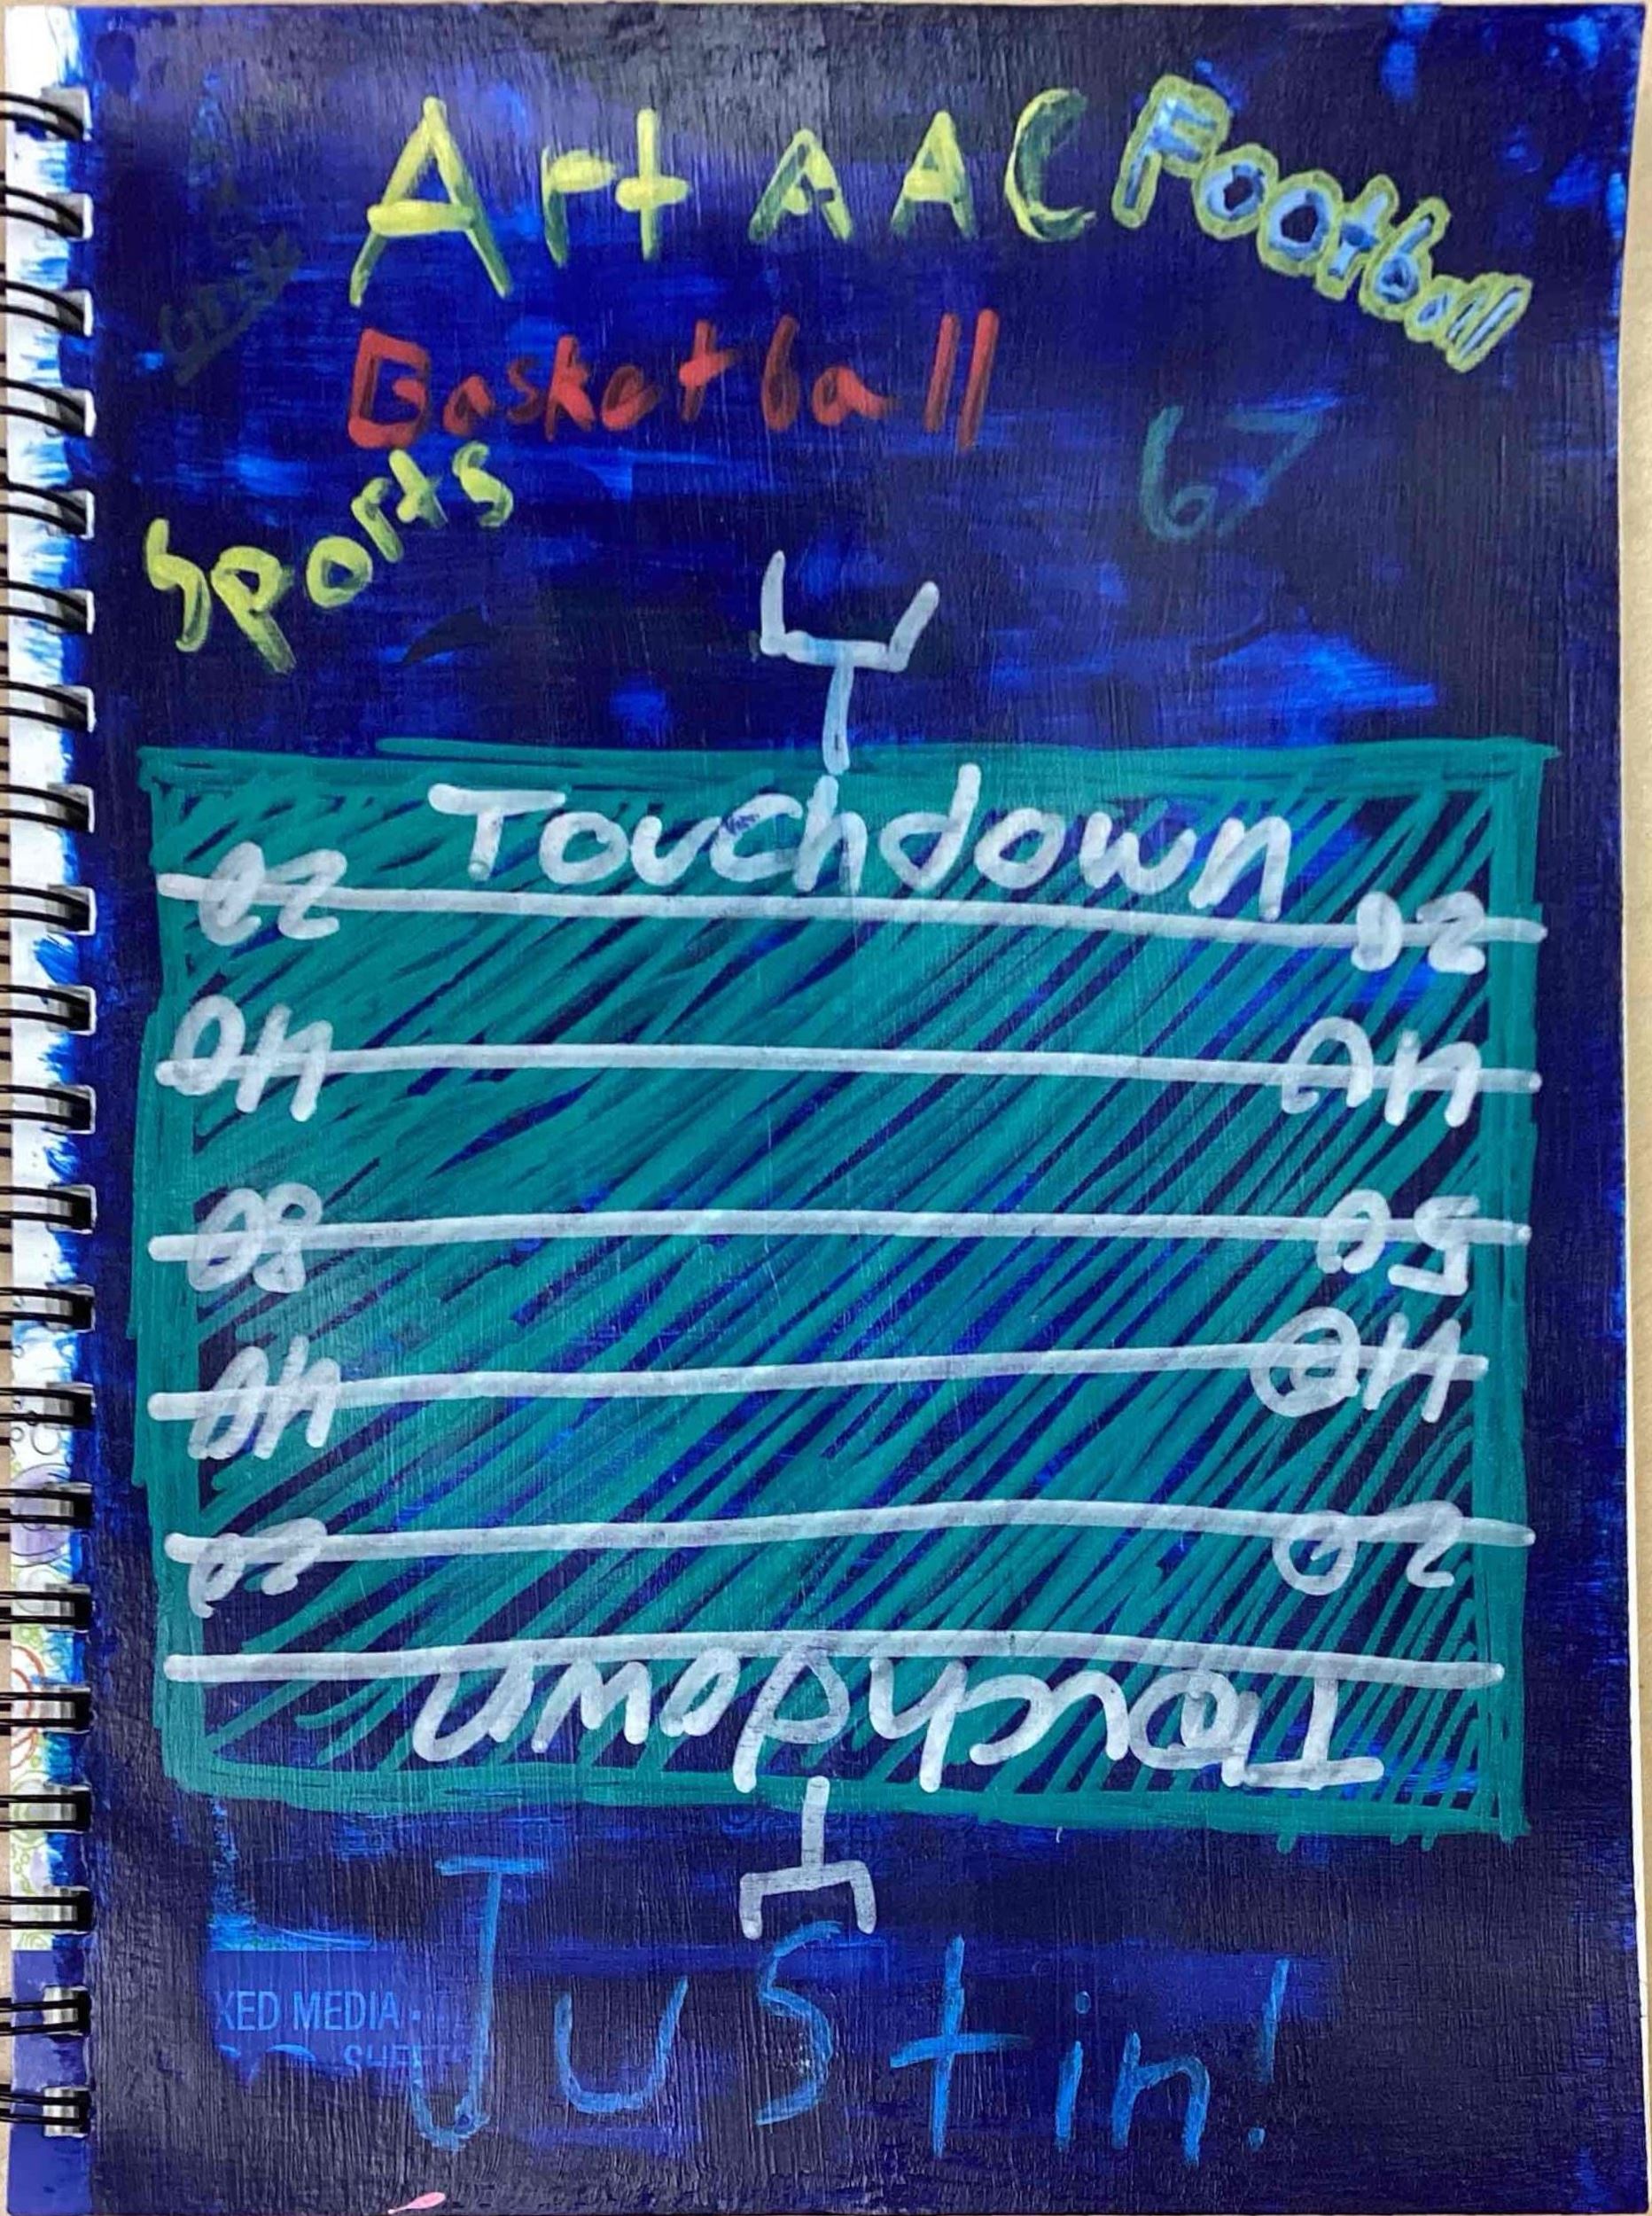 Art AAC Football
Basketball
67
Sports
Touchdown
20 20
40 40
80 50
40 40
20 20
Touchdown
Justin!
XED MEDIA •
SHEET